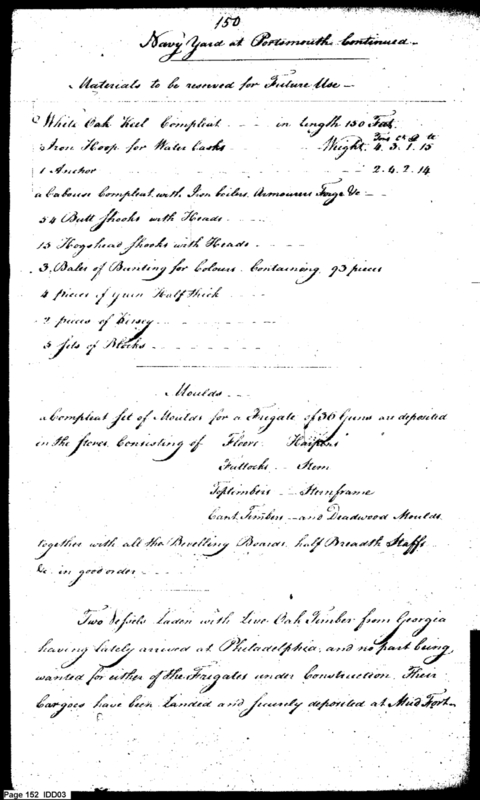 150
Navy Yard at Portsmouth Continued
Materials to be reserved for Future Use
White Oak Keel Compleat in length 150 Feet
Tons Ct Q lb
Iron Hoop for Water Casks Weight 4. 3. 1. 15
1 Anchor 2. 4. 2. 14
a Cabouse Compleat with Iron boilers Armourers Forge &c
54 Butt Shooks with Heads
15 Hogshead Shooks with Heads
3 Bales of Bunting for Colours Containing 93 pieces
4 pieces of green Half thick
2 pieces of Kersey
5 sets of Blocks
Moulds
a Compleat Set of Moulds for a Frigate of 36 Guns are deposited
in the Stores Consisting of Floor Harpins
Futtocks Stem
Toptimbers Sternframe
Cant Timbers and Deadwood Moulds
together with all the Bevelling Boards half Breadth Staffs
&c in good order
Two Vessels Laden with Live Oak Timber from Georgia
having lately arrived at Philadelphia and no part being
wanted for either of the Frigates under Construction Their
Cargoes have been Landed and securely deposited at Mud Fort
Page 152 IDD03